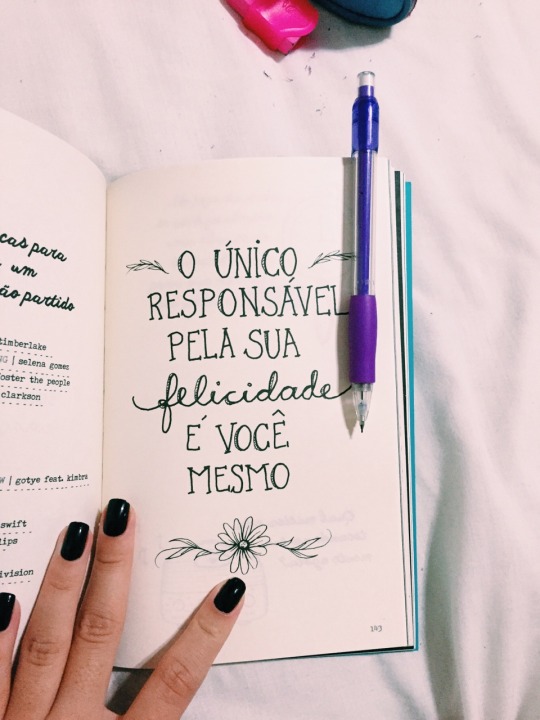 cas para
um
ão partido
timberlake
NG | selena gomez
foster the people
clarkson
W | gotye feat. kimbra
swift
lips
ivision
O ÚNICO
RESPONSÁVEL
PELA SUA
felicidade
É VOCÊ
MESMO
143